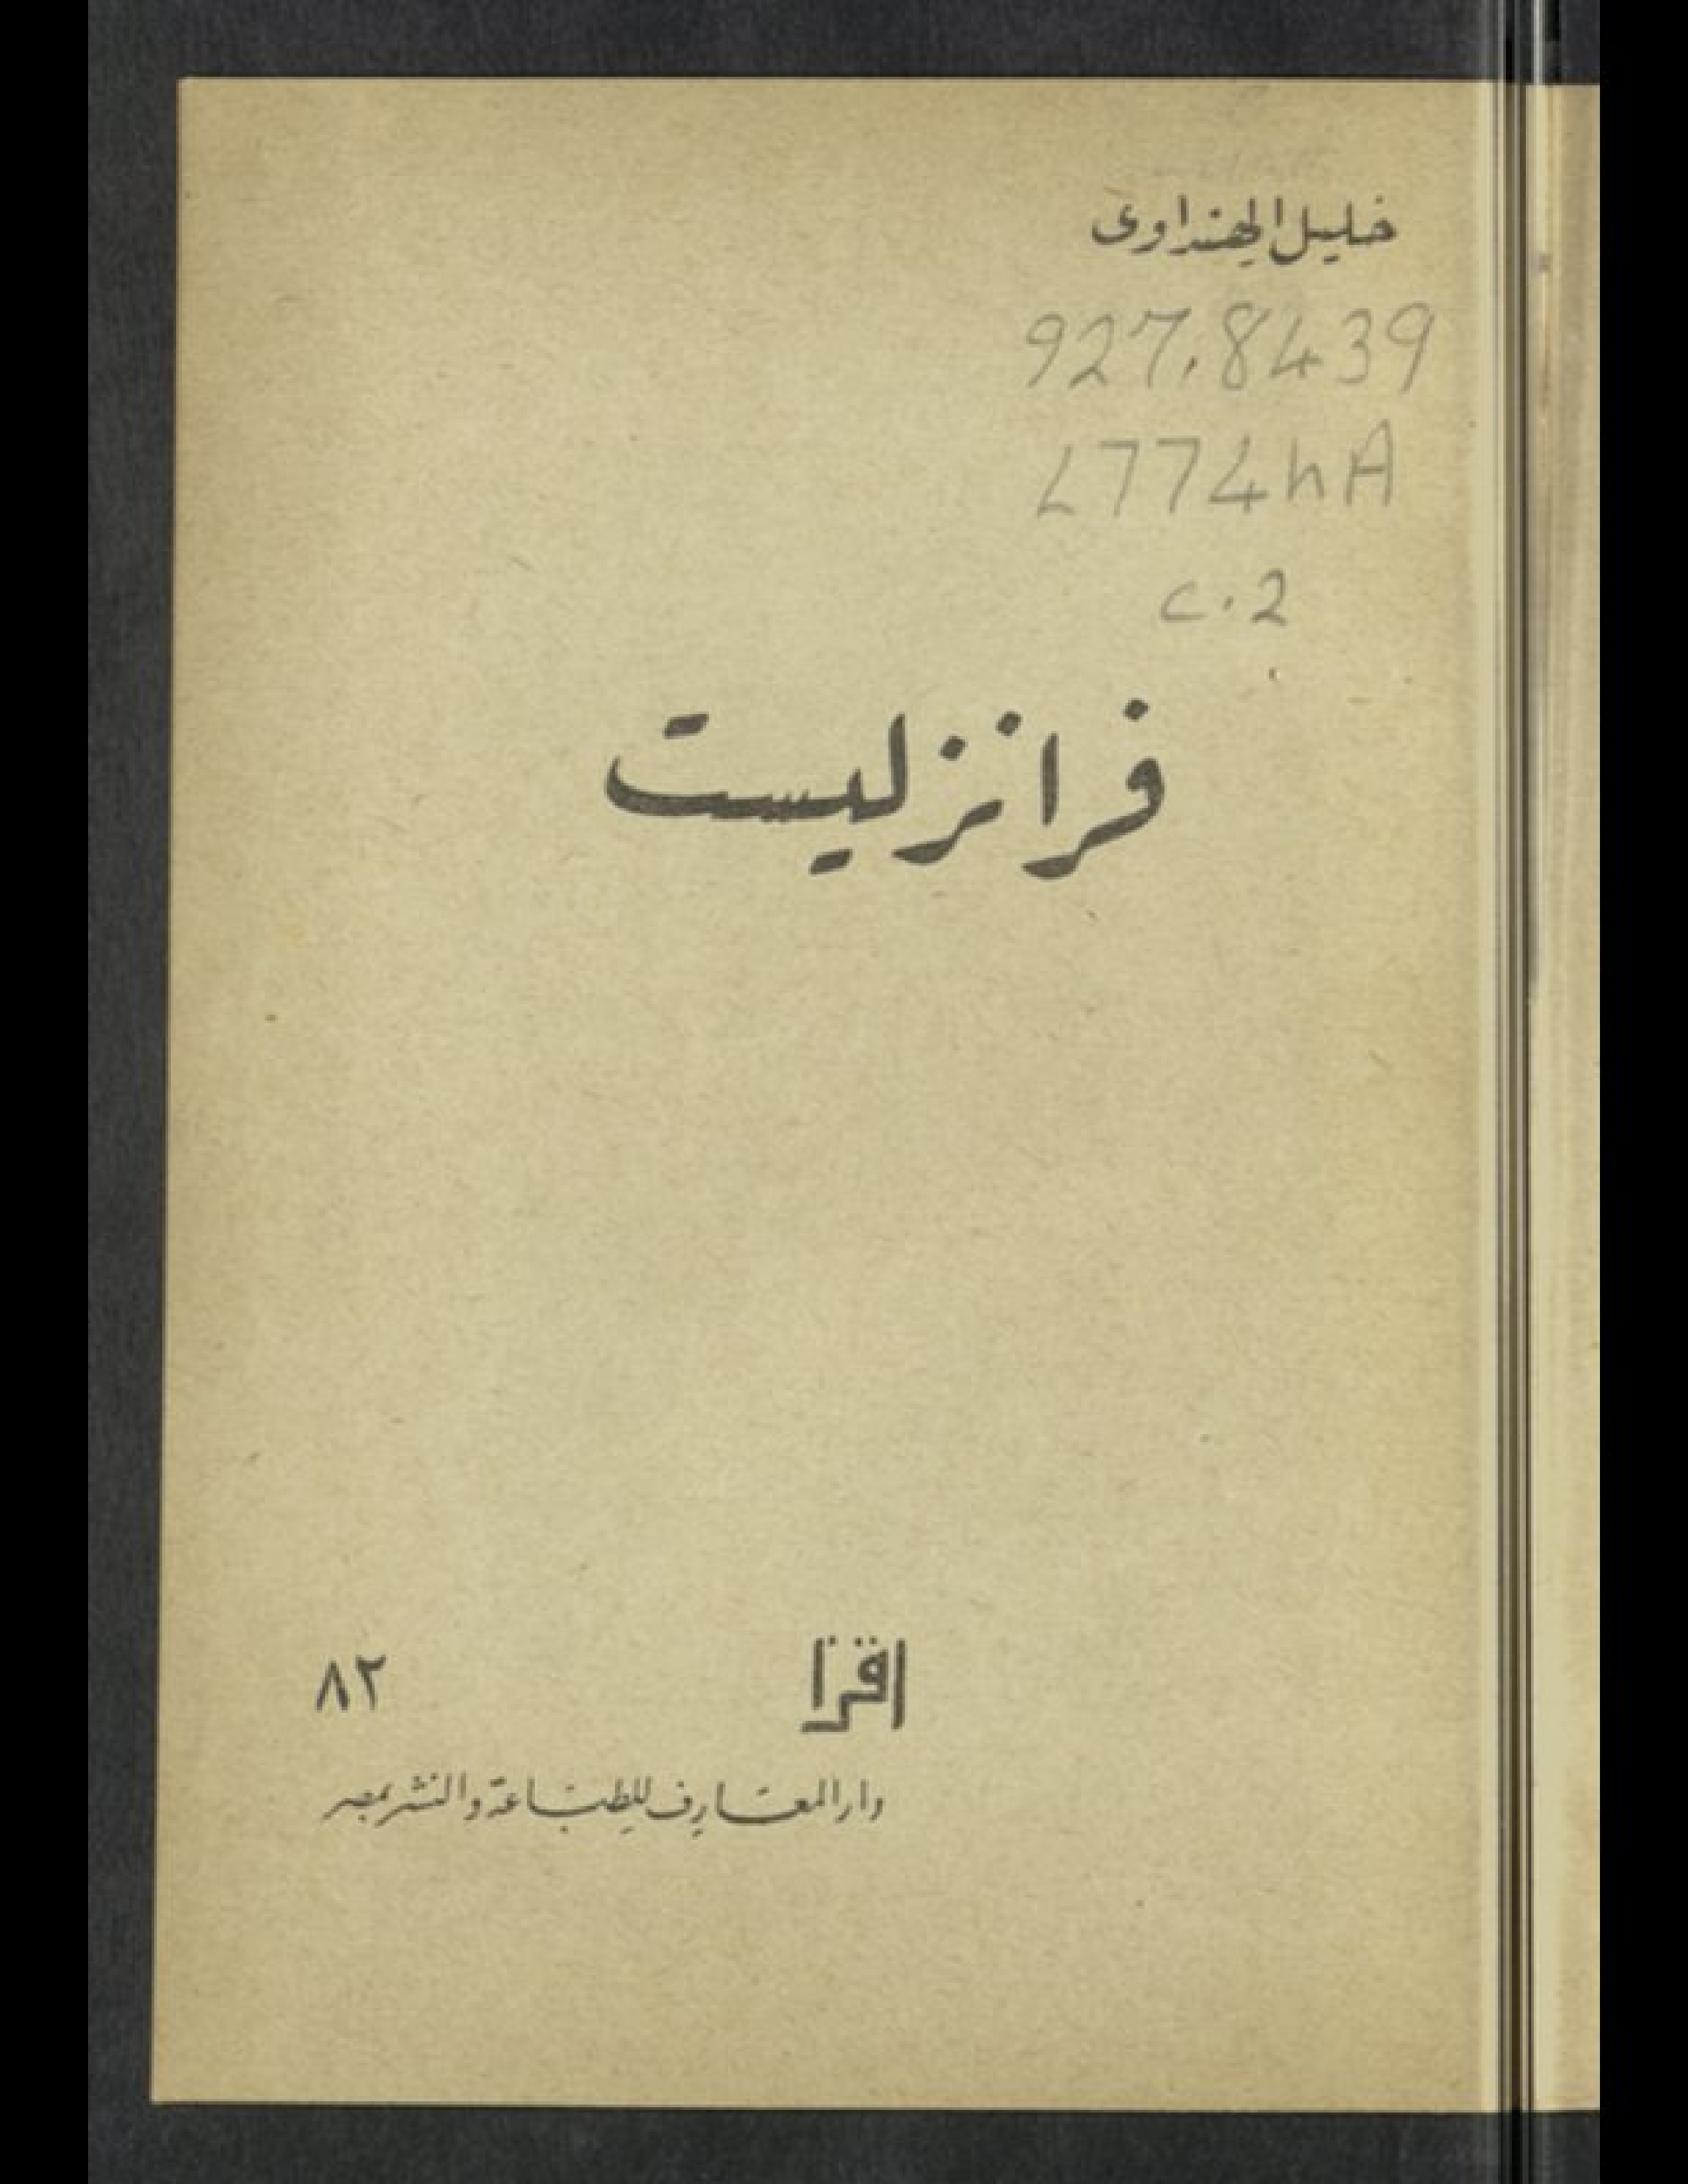 خليل الهنداوى
927.8439
L774hA
c.2
فرانز ليست
اقرأ ٨٢
دار المعارف للطباعة والنشر بمصر